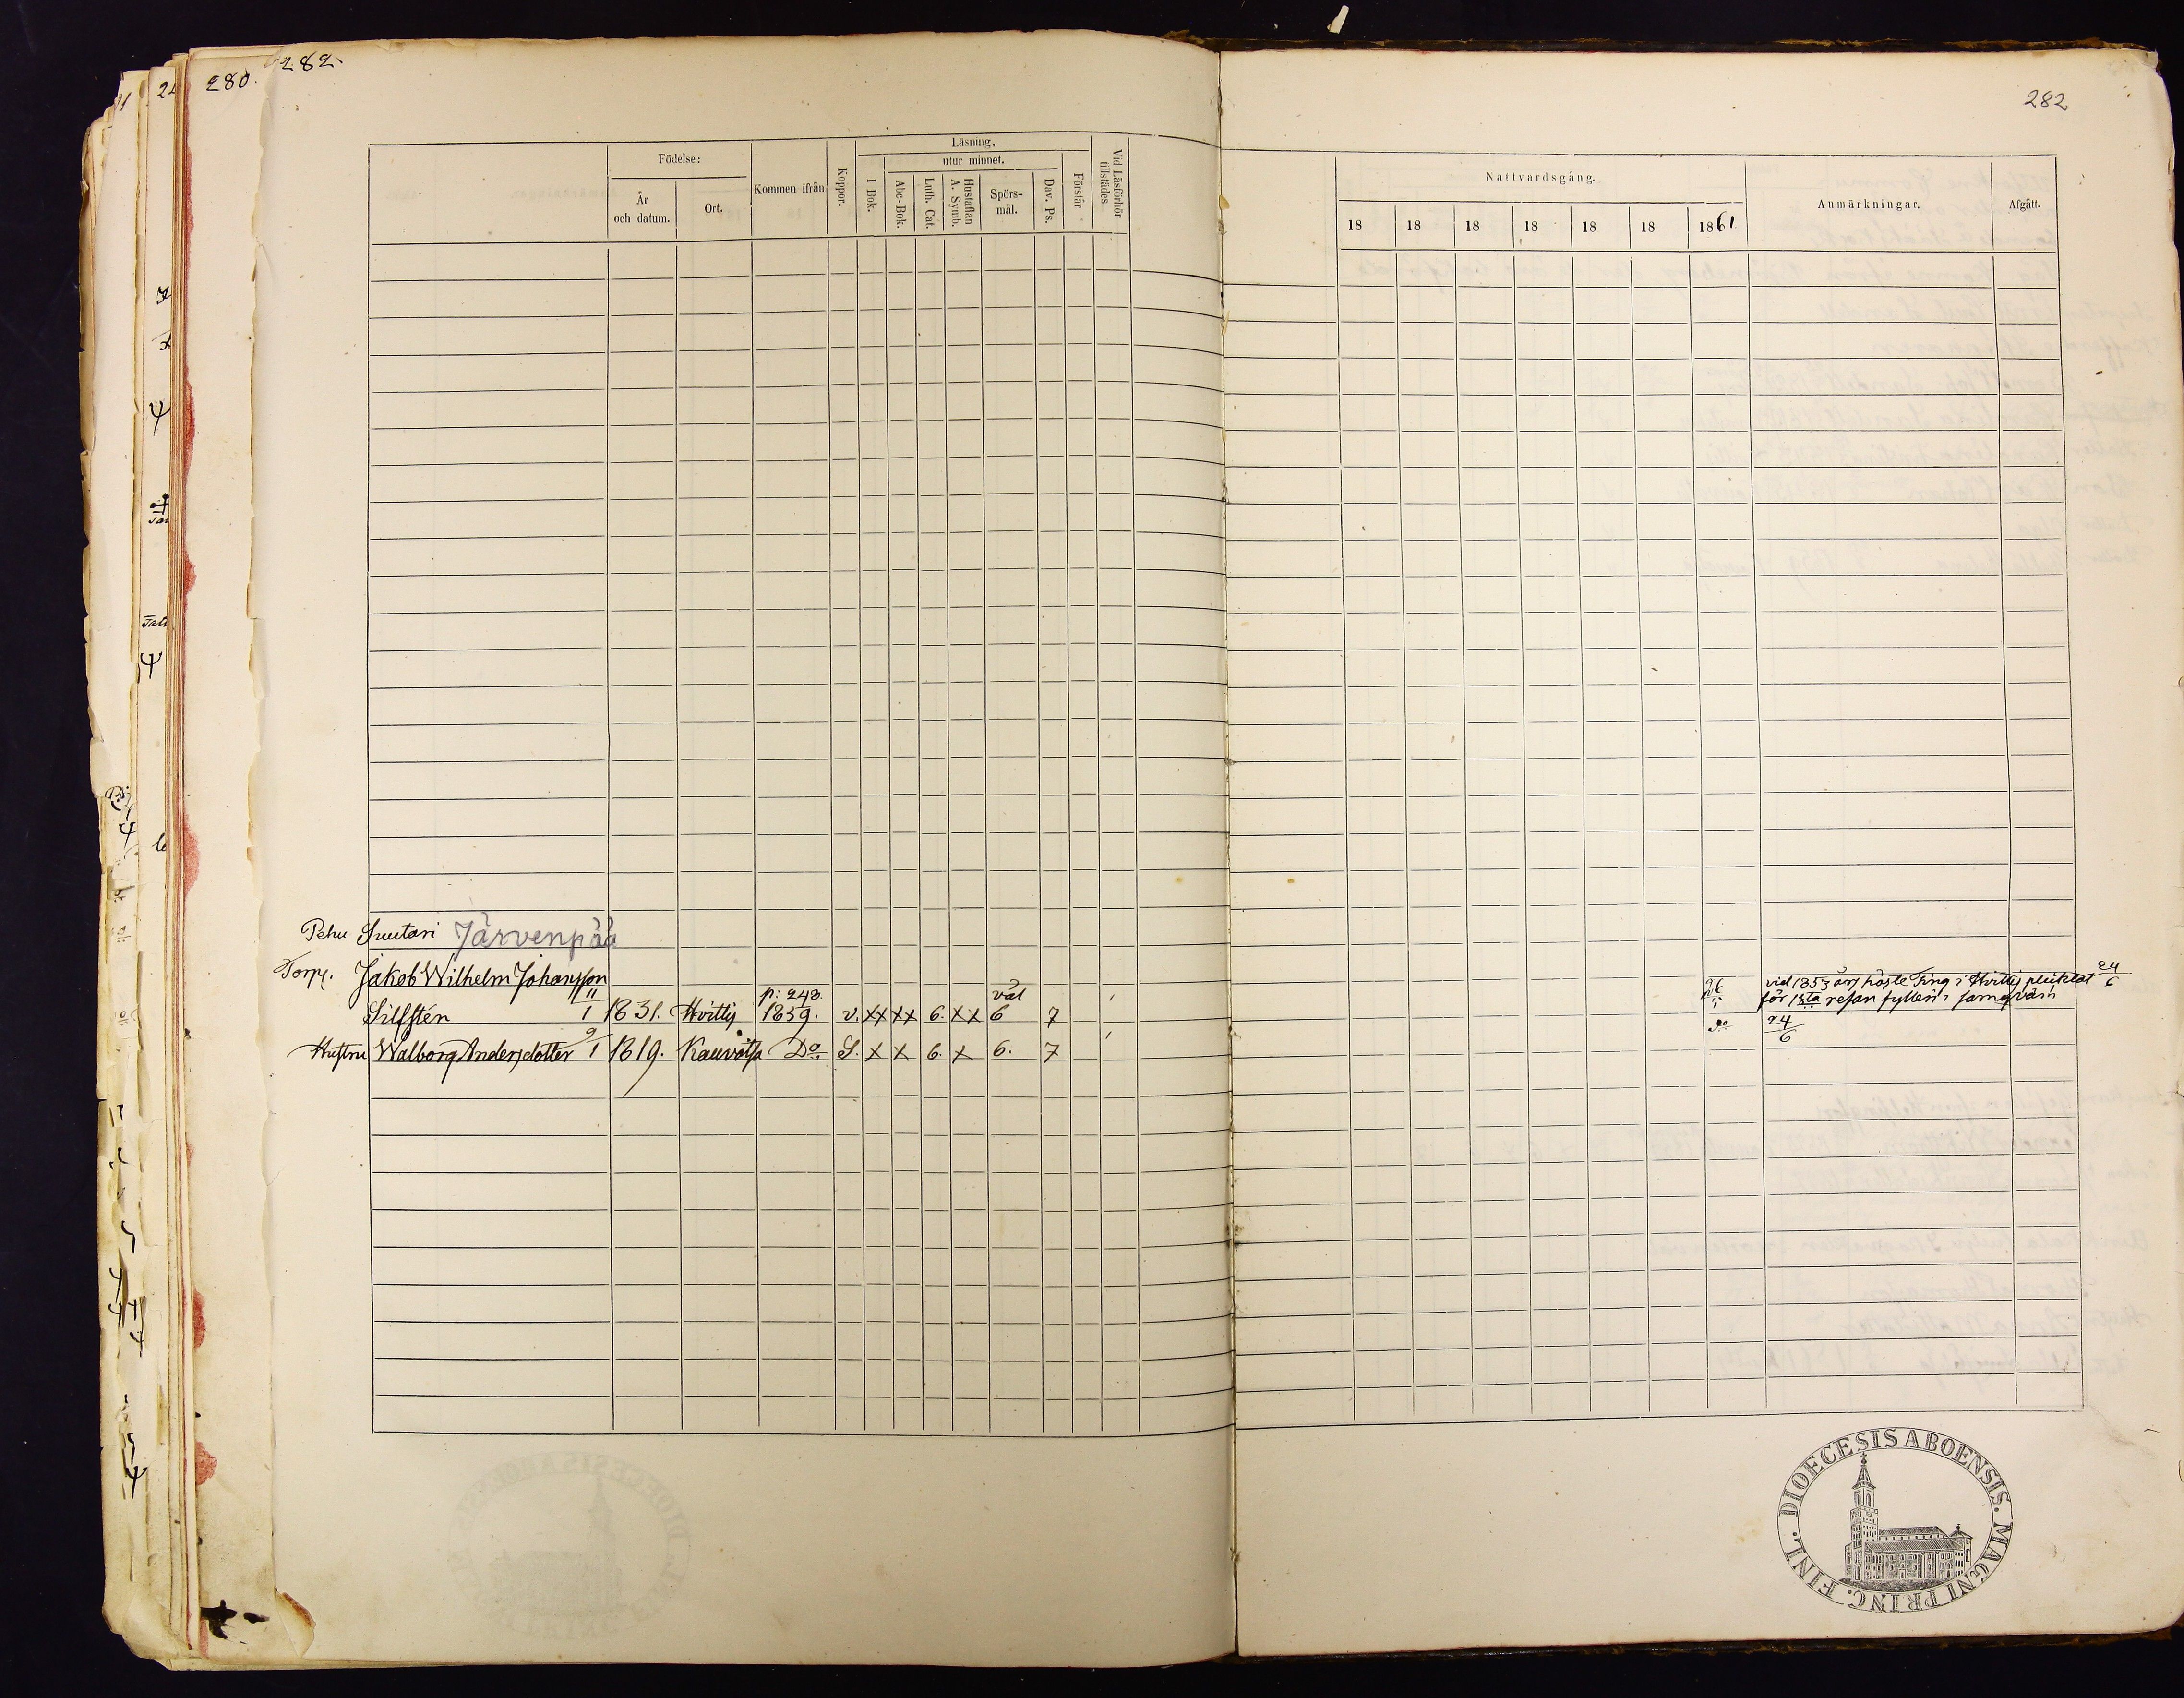 282
280.
282
Födelse:
År
och datum.
Ort.
Kommen ifrån
Koppor.
Läsning.
I Bok.
utur minnet.
Abc-Bok.
Luth. Cat.
Hustaflan
A. Symb.
Spörs-
mål.
Dav. Ps.
Förstår
Vid Läsförhör
tillstädes
Nattvardsgång.
18 18 18 18 18 18 1861
Anmärkningar.
Afgått.
Pehu Suutari Järvenpää
Torp. Jakob Wilhelm Johansson
Silfstén 11/1 1831. Hvittis p: 248. 1859. v. XX XX 6. X X väl 6 7
vid 1853 års höste Ting i Hvittis pliktat 24/6
för 1sta resan fylleri i samqväm
Hustru Walborg Andersdotter 9/1 1819. Kauvatsa Do S. X X 6. X 6. 7
Do 24/6
DIOECESIS ABOENSIS. MAGNI PRINC. FINL.